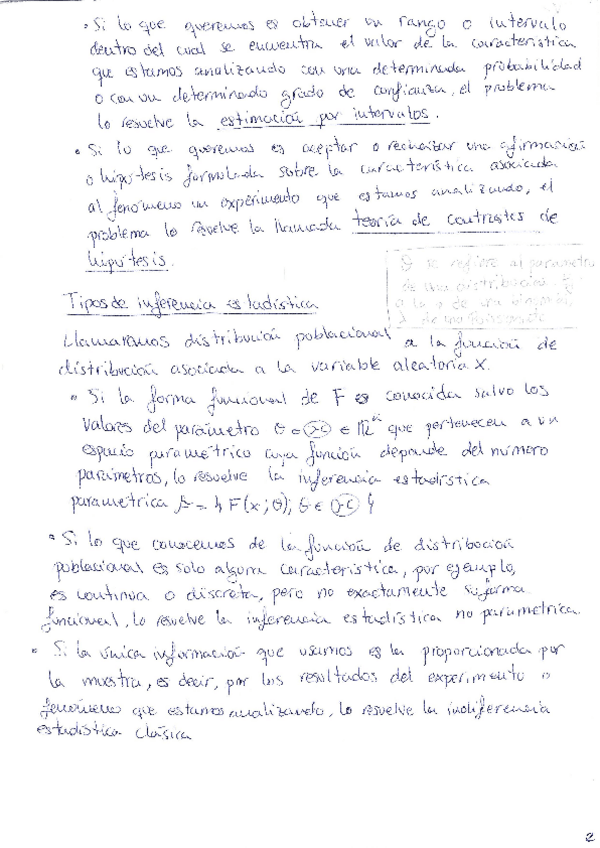 • Si lo que queremos es obtener un rango o intervalo
dentro del cual se encuentra el valor de la característica
que estamos analizando con una determinada probabilidad
o con un determinado grado de confianza, el problema
lo resuelve la estimación por intervalos.
• Si lo que queremos es aceptar o rechazar una afirmación
o hipótesis formulada sobre la característica asociada
al fenómeno un experimento que estamos analizando, el
problema lo resuelve la llamada teoría de contrastes de
hipótesis.
θ se refiere al parámetro
de una distribución.
a la p de una binomial,
λ de una
Tipos de inferencia estadística
Llamaremos distribución poblacional a la función de
distribución asociada a la variable aleatoria X.
• Si la forma funcional de F es conocida salvo los
valores del parámetro θ ∈ Θ ∈ ℝᵏ que pertenecen a un
espacio paramétrico cuya función depende del número
parámetros, lo resuelve la inferencia estadística
paramétrica = { F(x; θ); θ ∈ Θ }
• Si lo que conocemos de la función de distribución
poblacional es solo alguna característica, por ejemplo,
es continua o discreta, pero no exactamente su forma
funcional, lo resuelve la inferencia estadística no paramétrica.
• Si la única información que usamos es la proporcionada por
la muestra, es decir, por los resultados del experimento o
fenómeno que estamos analizando, lo resuelve la indiferencia
estadística clásica
2